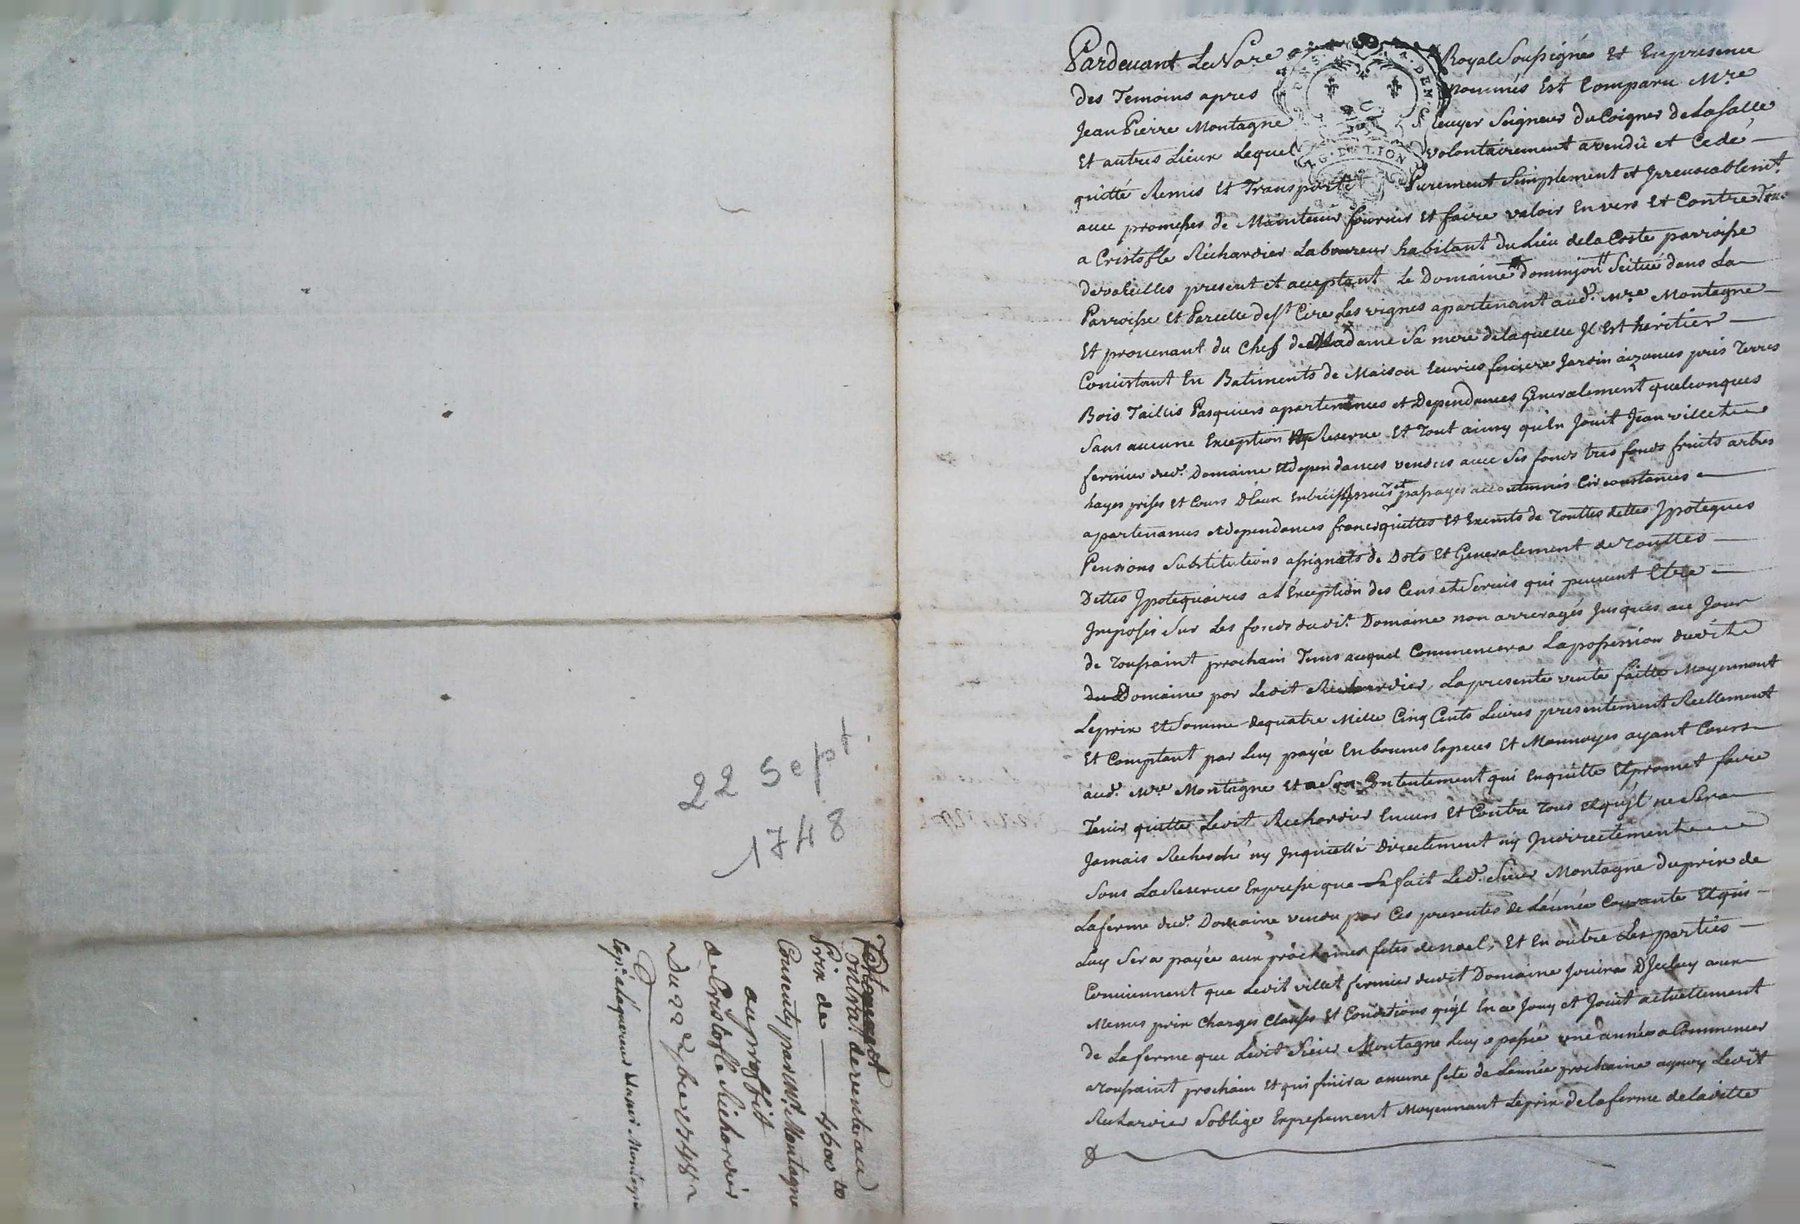 Pardevant Le No.re Royal Soussigné Et En presence
des Temoins apres nommés Est Comparu M.re
Jean Pierre Montagne Ecuyer Seigneur Du Coignet de La Salle
Et autres Lieux Lequel volontairement a vendû et Cedé
quitté Remis Et Transporté Purement Simplement et Irrevocablem.t
avec promesses de Maintenir fournir Et faire valoir Envers Et Contre Tous
a Cristofle Richardier Laboureur habitant du Lieu de la Coste parroisse
de vareilles present et acceptant Le Domaine Scitué dans La
Parroisse Et Parcelle de S.t Cire Les vignes apartenant aud. M.re Montagne
Et provenant du Chef de Madame Sa mere de laquelle Il Est heritier
Consistant En Batiments de Maison Ecuries feniere Jardin aizances prés Terres
Bois Taillis Pasquiers apartenences et Dependances Generalement quelconques
Sans aucune Exception Reserve Et Tout ainsy qu'En Jouit Jean villet
fermier dud. Domaine Et dependances vendus avec Ses fonds tres fonds fruits arbres
hayes prises Et Cours D'eaux Entrées et passages accoutumés Circonstances
apartenances et dependances francs quittes Et Exemts de Touttes dettes Ypoteques
Pensions Substitutions assignats de Dots Et Generalement de Touttes
Dettes Ypotequaires a L'Exception des Cens et Servis qui peuvent Etre
Imposés Sur Les fonds dudit Domaine non arreragés Jusques au Jour
de Toussaint prochain Tems auquel Commencera La possession dudit
Domaine par Ledit Richardier, La presente vente faitte Moyennant
Le prix Et Somme de quatre Mille Cinq Cents Livres presentement Reellement
Et Comptant par Luy payée En bonnes Especes Et Monnoyes ayant Cours
aud. M.re Montagne Et a Son Contentement qui Enquitte Et promet faire
Tenir quitte Ledit Richardier Envers Et Contre Tous Et qu'il ne Sera
Jamais Recherché ny Inquietté Directement ny Indirectement
Sous La Reserve Expresse que fait Led. Sieur Montagne du prix de
La ferme dud. Domaine vendu par Ces presentes de L'année Courante Et qui
Luy Sera payée aux prochaines fetes de noel, Et En outre Les parties
Conviennent que Ledit villet fermier dudit Domaine Jouira D'Iceluy aux
Memes prix Charges Clauses Et Conditions qu'il En a Jouy et Jouit actuellement
de La ferme que Ledit Sieur Montagne Luy a passée une année a Commencer
a Toussaint prochain Et qui finira a meme fete de L'année prochaine Ledit
Richardier S'oblige Expressement Moyennant Le prix de la ferme de laditte
22 Sept
1748
Contrat de vente au
Prix de 4500 tt
Consenty par M.re Montagne
au proffit
de Cristofle Richardier
Du 22 7bre 1748